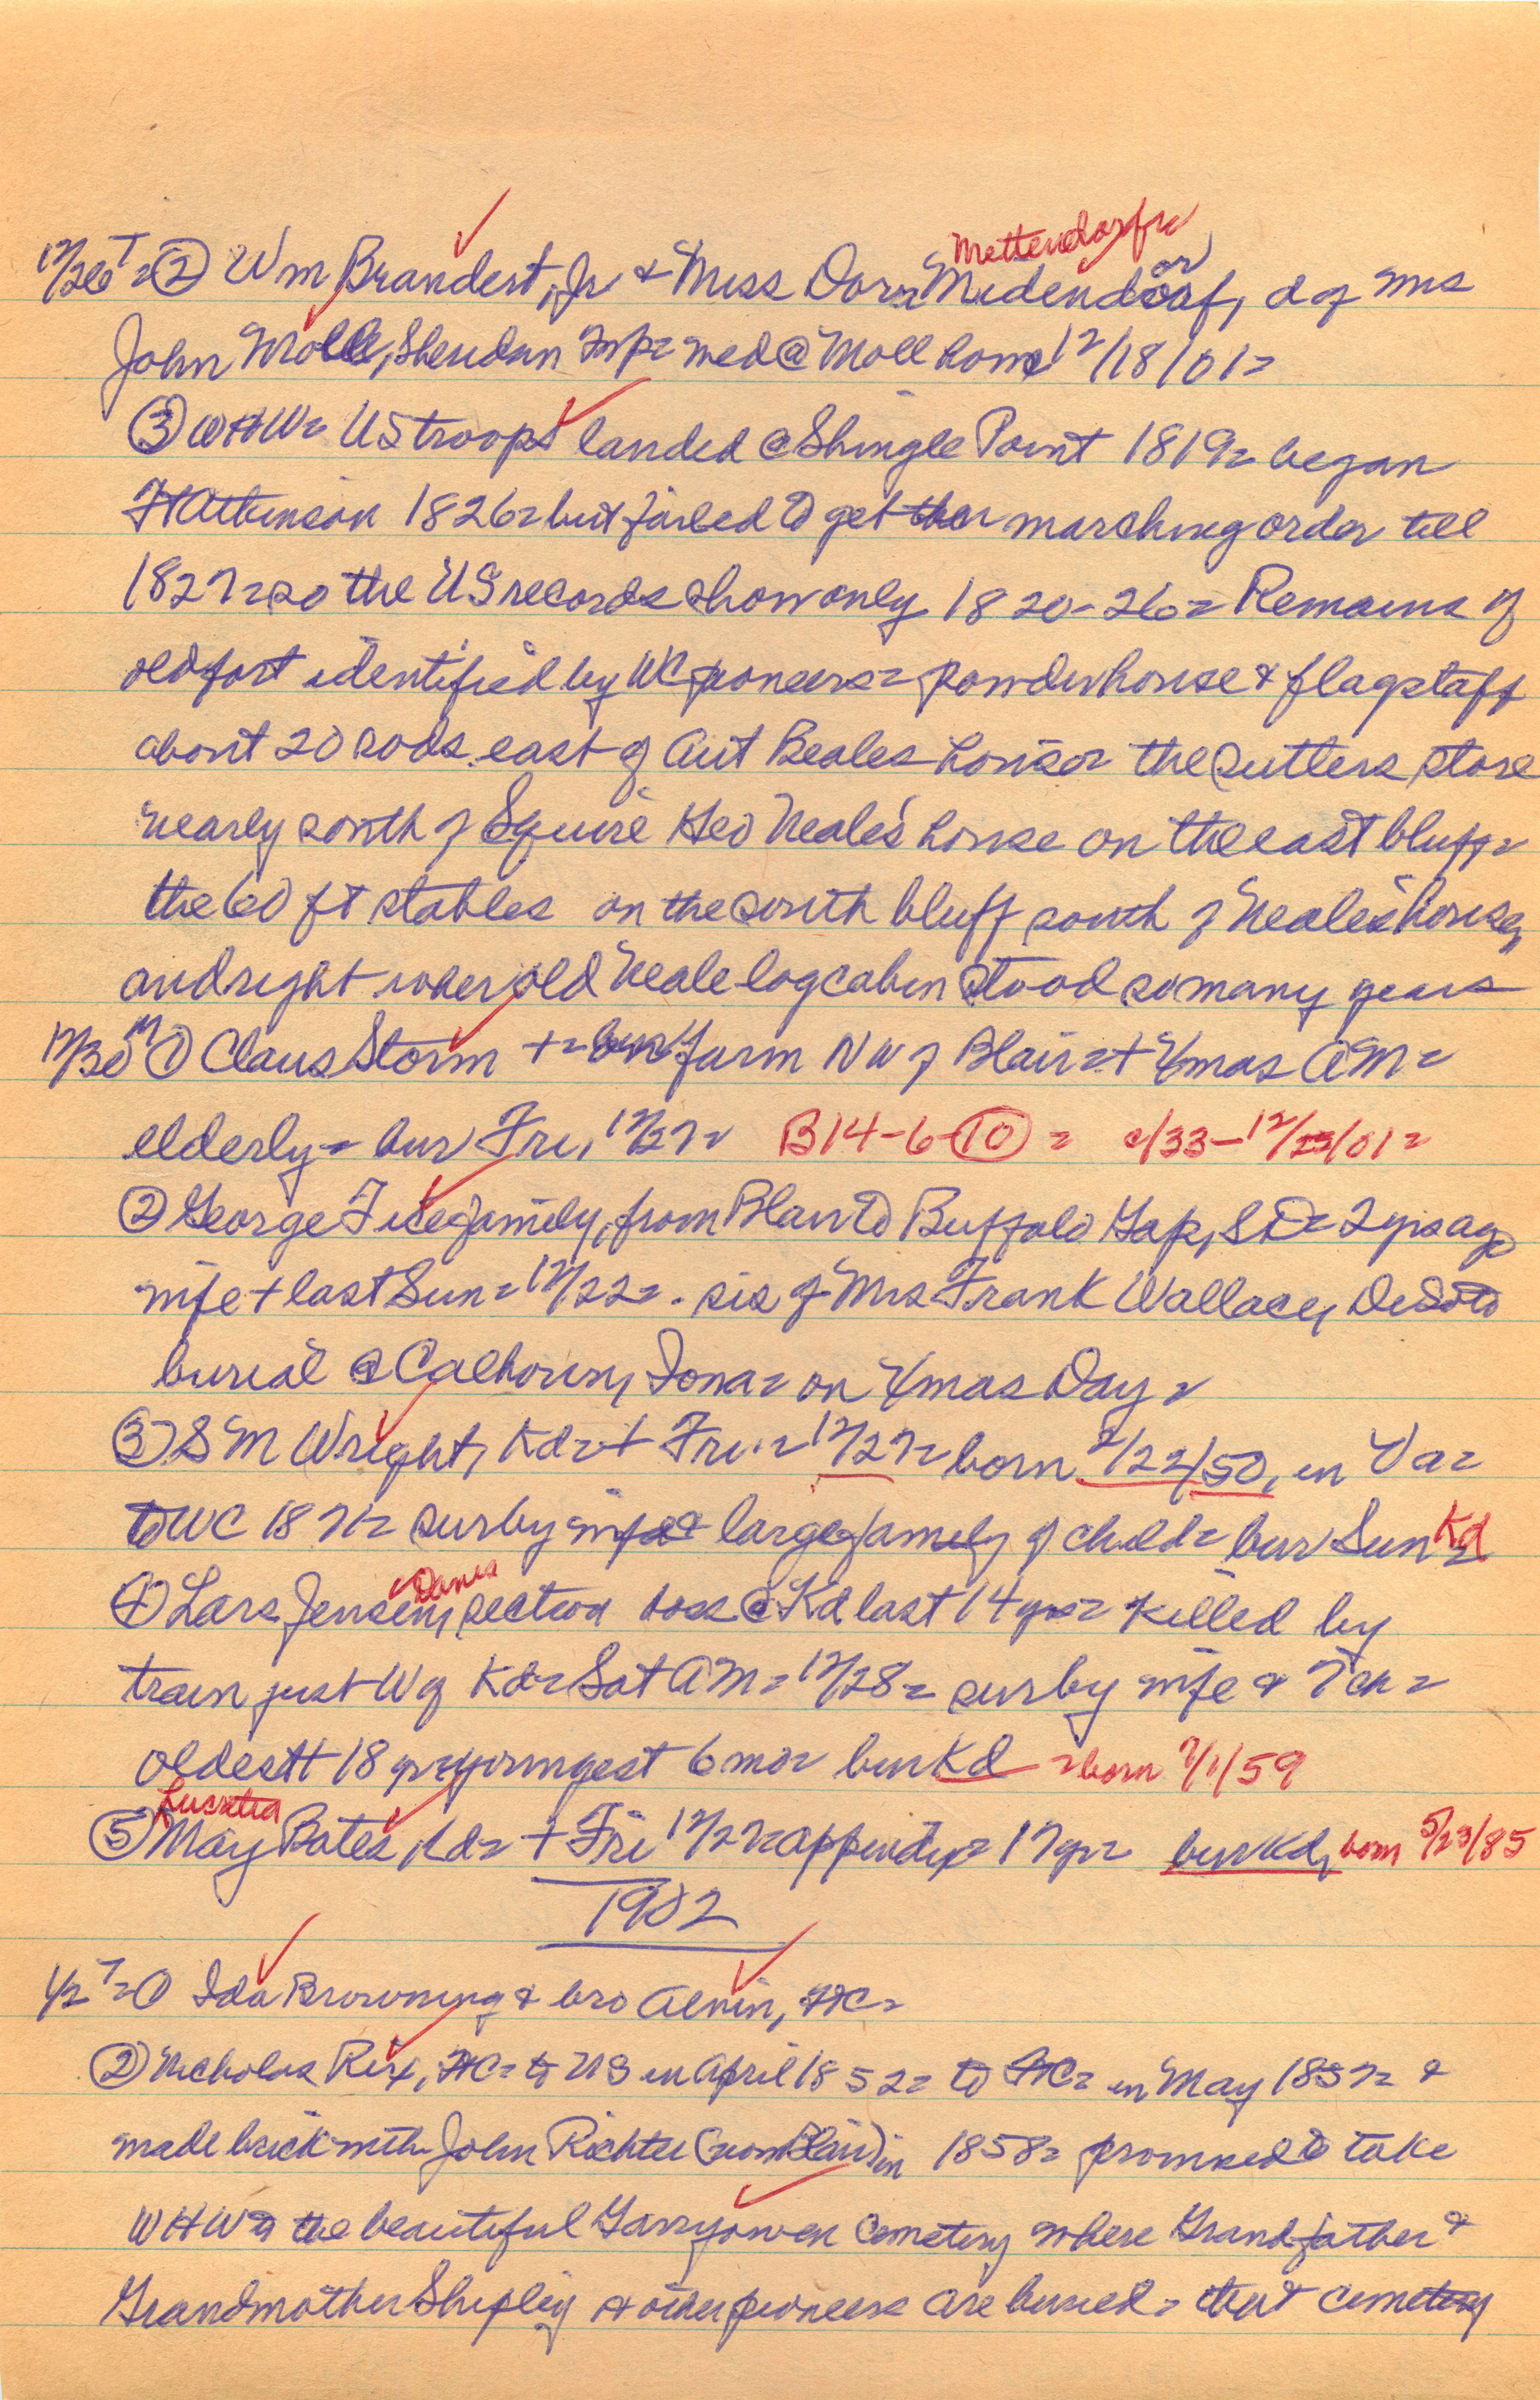 Mettendorf
12/26 T= ② Wm Brandert, Jr & Miss Dora Midendoraf, d of Mrs
John Moll, Sheridan Twp= wed @ Moll home 12/18/01=
③ WHW= US troops landed @ Shingle Point 1819= began
Ft Atkinson 1826= but failed to get their marching order till
1827= so the US records show only 1820-26= Remains of
old fort identified by WC pioneers= powderhouse & flagstaff
about 20 rods east of Aut Beales house= the sutlers store
nearly south of Squire Geo Neale's house on the east bluff=
the 60 ft stables on the south bluff south of Neale's house,
and right where old Neale log cabin stood so many years
12/30 M ① Claus Storm += farm NW of Blair= + Xmas AM=
elderly= bur Fri, 12/27= B14-6-10 = c/33-12/25/01=
② George Fice family, from Blair to Buffalo Gap, SD= 2 yrs ago
wife + last Sun= 12/22=. sis of Mrs Frank Wallace, DeSoto
burial @ Calhoun, Iowa= on Xmas Day=
③ S M Wright, Kd= + Fri.= 12/27= born 2/22/50, in Va=
to WC 1871= sur by wife & large family of child= bur Sun Kd=
④ Lars Jensen, Dania section boss @ Kd last 14 yrs= killed by
train just W of Kd= Sat AM= 12/28= sur by wife & 7 ch=
oldest 18 yr youngest 6 mo= bur Kd =born 7/1/59
Lucretia
⑤ May Bates, Kd= + Fri 12/27= appendix= 17 yr= bur Kd, born 5/23/85
1902
1/2 T= ① Ida Browning & bro Alvin, FtC=
② Nicholas Rix, FtC= to US in April 1852= to FtC= in May 1857= &
made brick with John Richter (now Blair) in 1858= promised to take
WHW to the beautiful Garryowen Cemetery where Grandfather &
Grandmother Shipley & other pioneers are buried= that cemetery